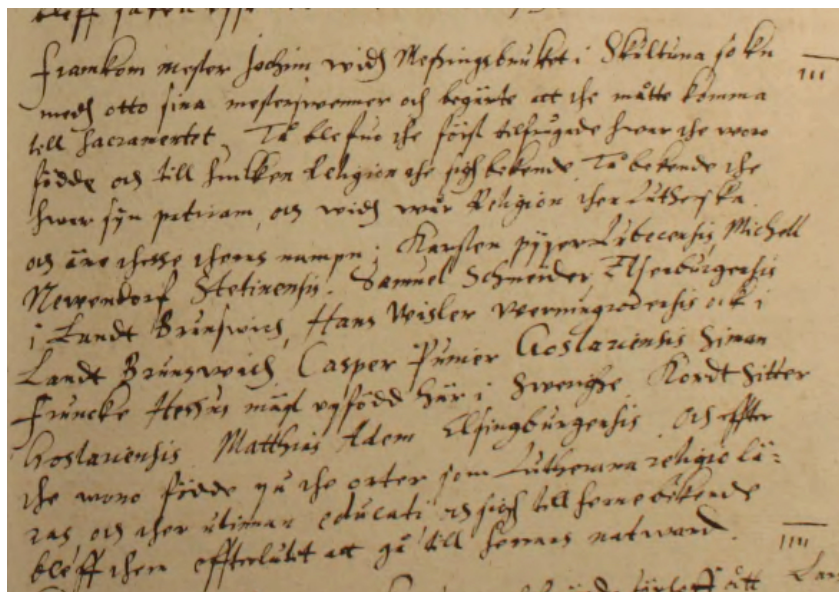 Framkom mester Jochim widh Messingsbruket i Skultuna sokn
medh otto sina mesterswenner och begärte att the måtte komma
till Sacramentet. Tå blefuo the först tilfrågade hwar the woro
födde och till huilken Religion the sigh bekende. Tå bekende the
hwar syn patriam, och widh wår Religion then Lutherska.
och äre thesse thera nampn: Karsten pijper Lubecensis, Michell
Newendorf Stetinensis. Samuel Schneider, Elserburgensis
i Landt Brunswich, Hans Wisler werningrodensis ock i
Landt Brunswich Casper Goslariensis Simon
Francke Hessus född här i Swerighe. Kordt Sitter
Goslariensis Matthias Adem Elsingburgensis och effter
the wore födde på the orter som Lutherana religio lä-
ras och ther educati och sigh till henne bekende
bleff them effterlåtet att gå till herrans natward.
III
IIII